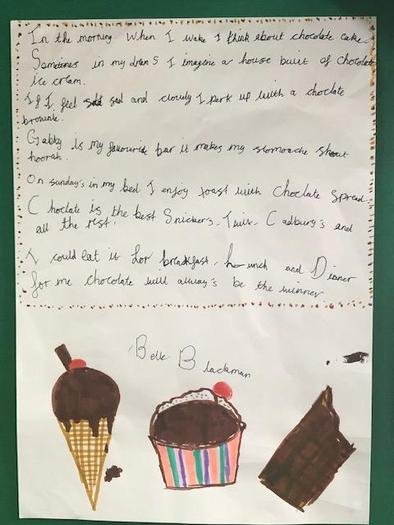 In the morning When I wake I think about chocolate cake.
Sometimes in my drems I imagine a house built of chocolate
ice cream.
If I feel sad and cloudy I perk up with a choclate
brownie.
Gabby is my favourite bar it makes my stomache shout
hoorah.
On sunday's in my bed I enjoy toast with Choclate spread.
Choclate is the best Snickers, Twix, Cadbury's and
all the rest.
I could eat it for breakfast, Lunch and Dinner
for me chocolate will always be the winner
Belle Blackman